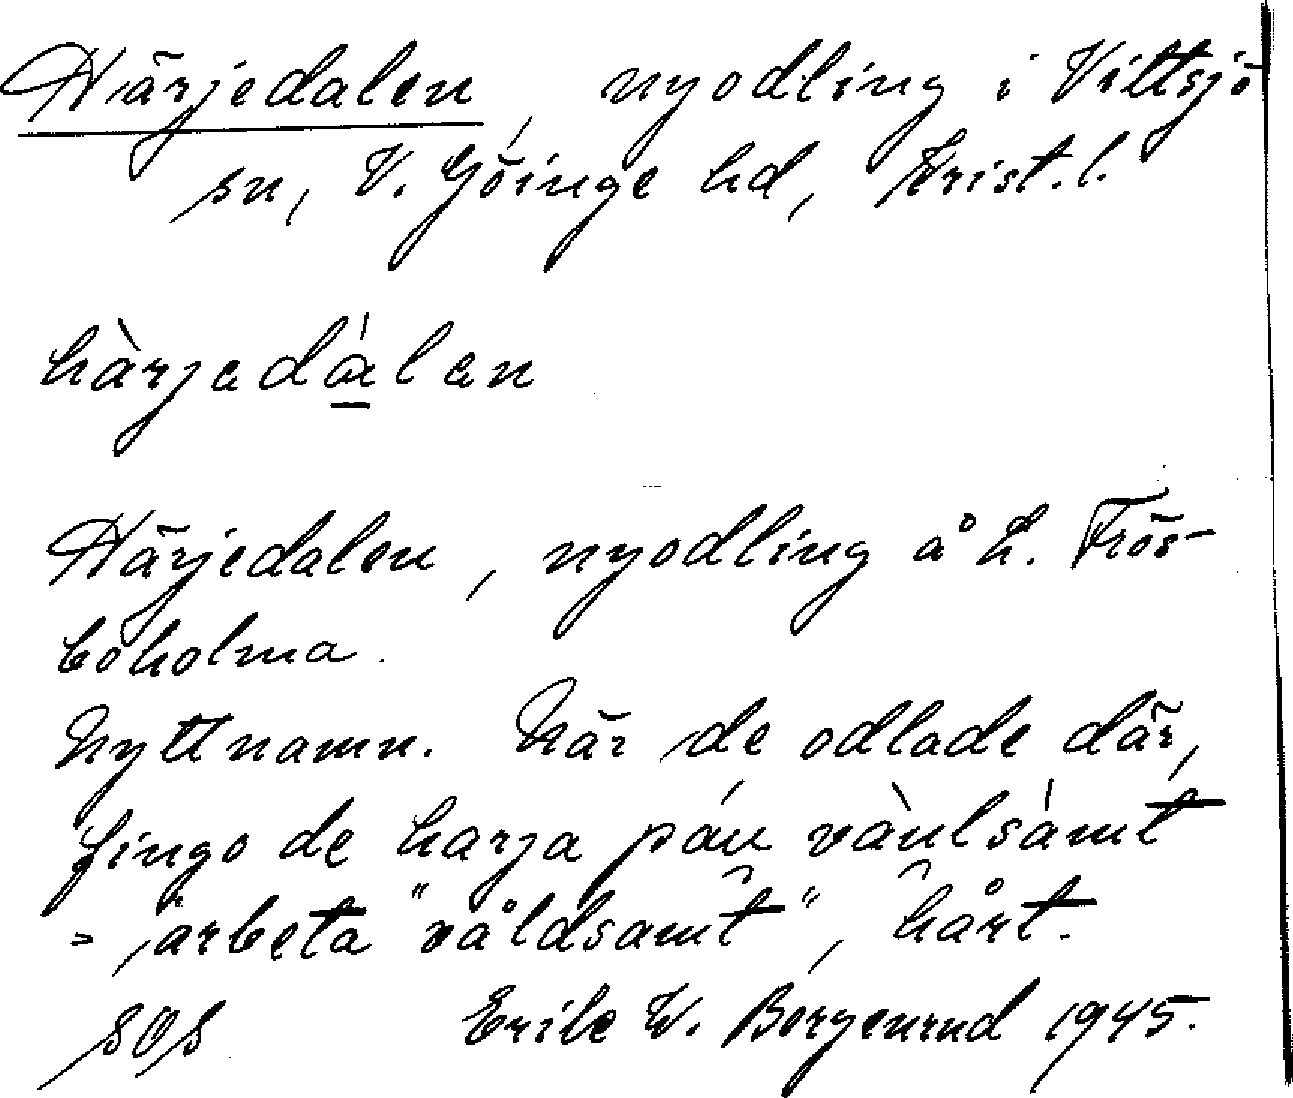 Härjedalen, nyodling i Vittsjö
sn, V. Göinge hd, Krist. l.
hàrjedálen
Härjedalen, nyodling å L. Frös-
boholma.
Nyttnamn. När de odlade där,
fingo de harja páu vànlsámt
= arbeta "våldsamt", hårt.
SOS Erik W. Borgenrud 1945.